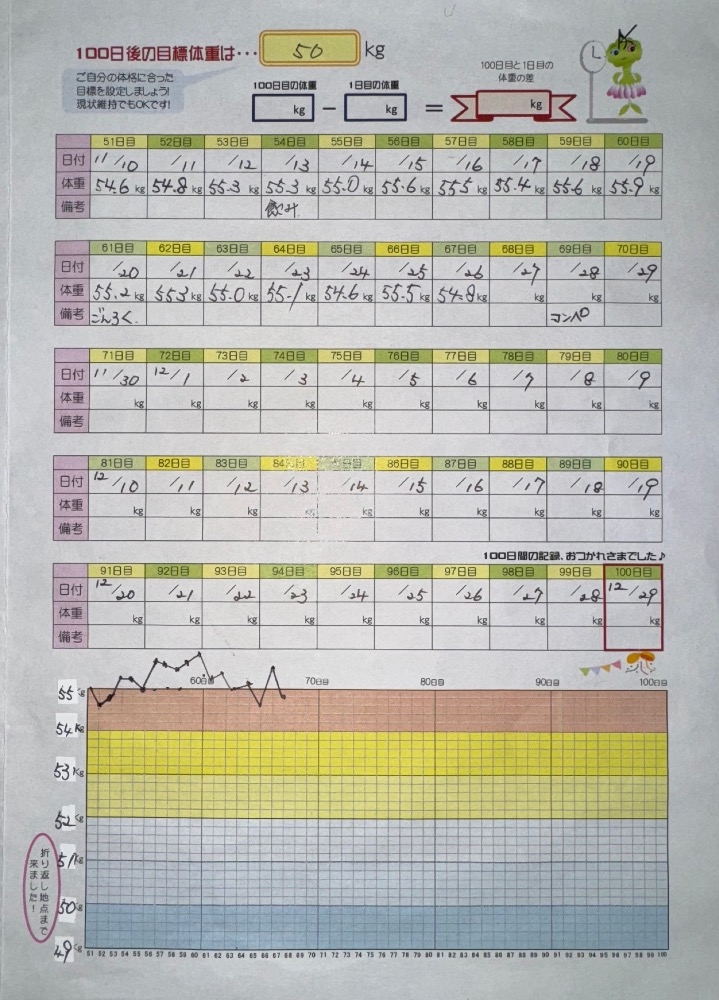 100日後の目標体重は・・・ 50 kg
ご自分の体格に合った
目標を設定しましょう!
現状維持でもOKです!
100日目の体重 1日目の体重
kg − kg = kg
100日目と1日目の
体重の差
51日目 52日目 53日目 54日目 55日目 56日目 57日目 58日目 59日目 60日目
日付 11/10 /11 /12 /13 /14 /15 /16 /17 /18 /19
体重 54.6kg 54.8kg 55.3kg 55.3kg 55.0kg 55.6kg 55.5kg 55.4kg 55.6kg 55.9kg
備考 飲み
61日目 62日目 63日目 64日目 65日目 66日目 67日目 68日目 69日目 70日目
日付 /20 /21 /22 /23 /24 /25 /26 /27 /28 /29
体重 55.2kg 55.3kg 55.0kg 55.1kg 54.6kg 55.5kg 54.8kg kg kg kg
備考 ごんろく コンペ
71日目 72日目 73日目 74日目 75日目 76日目 77日目 78日目 79日目 80日目
日付 11/30 12/1 /2 /3 /4 /5 /6 /7 /8 /9
体重 kg kg kg kg kg kg kg kg kg kg
備考
81日目 82日目 83日目 84日目 86日目 87日目 88日目 89日目 90日目
日付 12/10 /11 /12 /13 /14 /15 /16 /17 /18 /19
体重 kg kg kg kg kg kg kg kg kg
備考
100日間の記録、おつかれさまでした♪
91日目 92日目 93日目 94日目 95日目 96日目 97日目 98日目 99日目 100日目
日付 12/20 /21 /22 /23 /24 /25 /26 /27 /28 12/29
体重 kg kg kg kg kg kg kg kg kg kg
備考
60日目 70日目 80日目 90日目 100日目
55kg
54kg
53kg
52kg
51kg
50kg
49kg
折り返し地点まで
来ました!
51 52 53 54 55 56 57 58 59 60 61 62 63 64 65 66 67 68 69 70 71 72 73 74 75 76 77 78 79 80 81 82 83 84 85 86 87 88 89 90 91 92 93 94 95 96 97 98 99 100